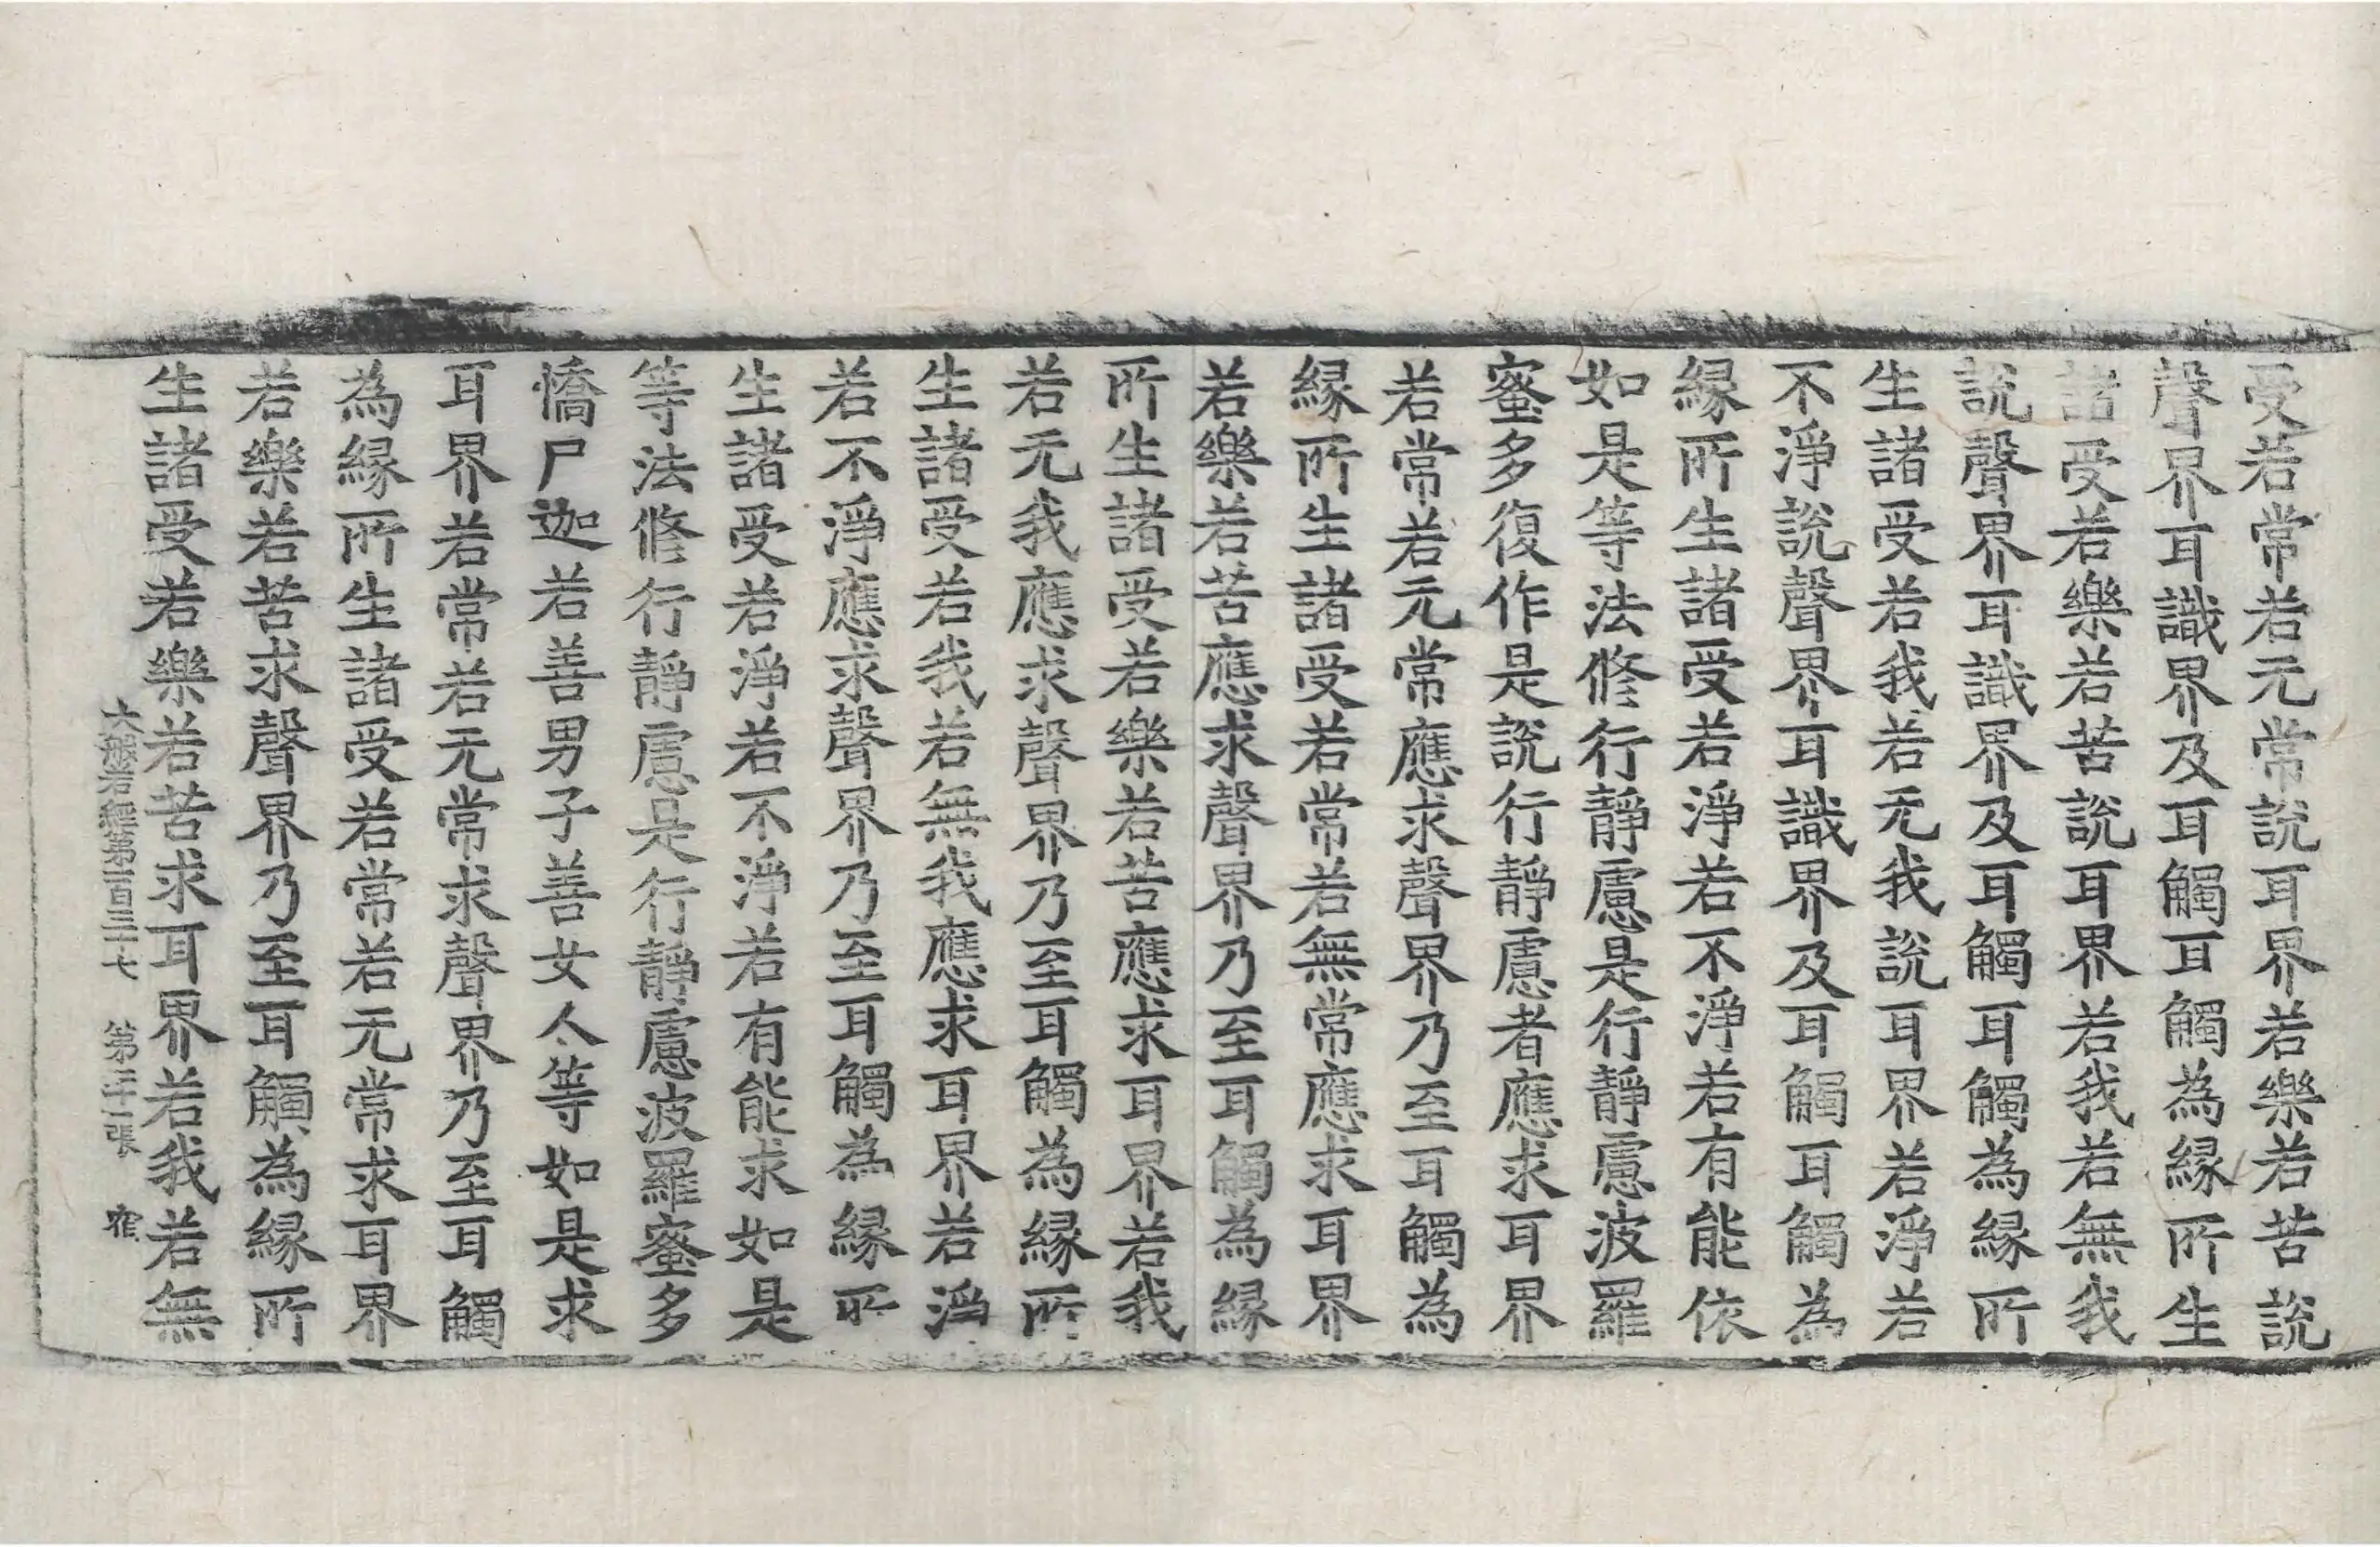 受若常若元常說耳界若樂若苦說
聲界耳識界及耳觸耳觸為縁所生
諸受若樂若苦說耳界若我若無我
說聲界耳識界及耳觸耳觸為縁所
生諸受若我若无我說耳界若淨若
不淨說聲界耳識界及耳觸耳觸為
縁所生諸受若淨若不淨若有能依
如是等法修行靜慮是行靜慮波羅
蜜多復作是說行靜慮者應求耳界
若常若元常應求聲界乃至耳觸為
縁所生諸受若常若無常應求耳界
若樂若苦應求聲界乃至耳觸為縁
所生諸受若樂若苦應求耳界若我
若无我應求聲界乃至耳觸為縁所
生諸受若我若無我應求耳界若淨
若不淨應求聲界乃至耳觸為縁所
生諸受若淨若不淨若有能求如是
等法修行靜慮是行靜慮波羅蜜多
憍尸迦若善男子善女人等如是求
耳界若常若元常求聲界乃至耳觸
為縁所生諸受若常若元常求耳界
若樂若苦求聲界乃至耳觸為縁所
生諸受若樂若苦求耳界若我若無
大般若經第一百三十七 第二十一張